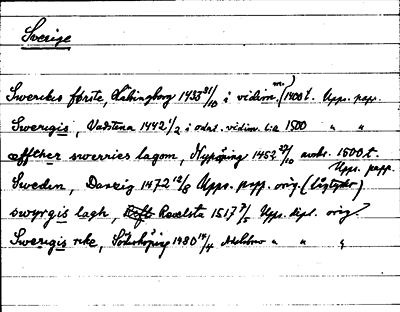 Sverige
Swerikes første, Helsingborg 1433 31/10 i vidim. (m. 1400 t. Upps. papp.
Swerigis, Vadstena 1442 1/2 i odat. vidim. c:a 1500 " "
æffther swerries lagom, Nyköping 1452 29/10 avskr. 1500 t. Upps. papp.
Sweden, Danzig 1472 12/8 Upps. papp. orig. (lågtyska)
swyrgis lagh, Revelsta 1517 3/5 Upps. dipl. orig.
Swerigis rike, Söderköping 1480 14/4 " " "